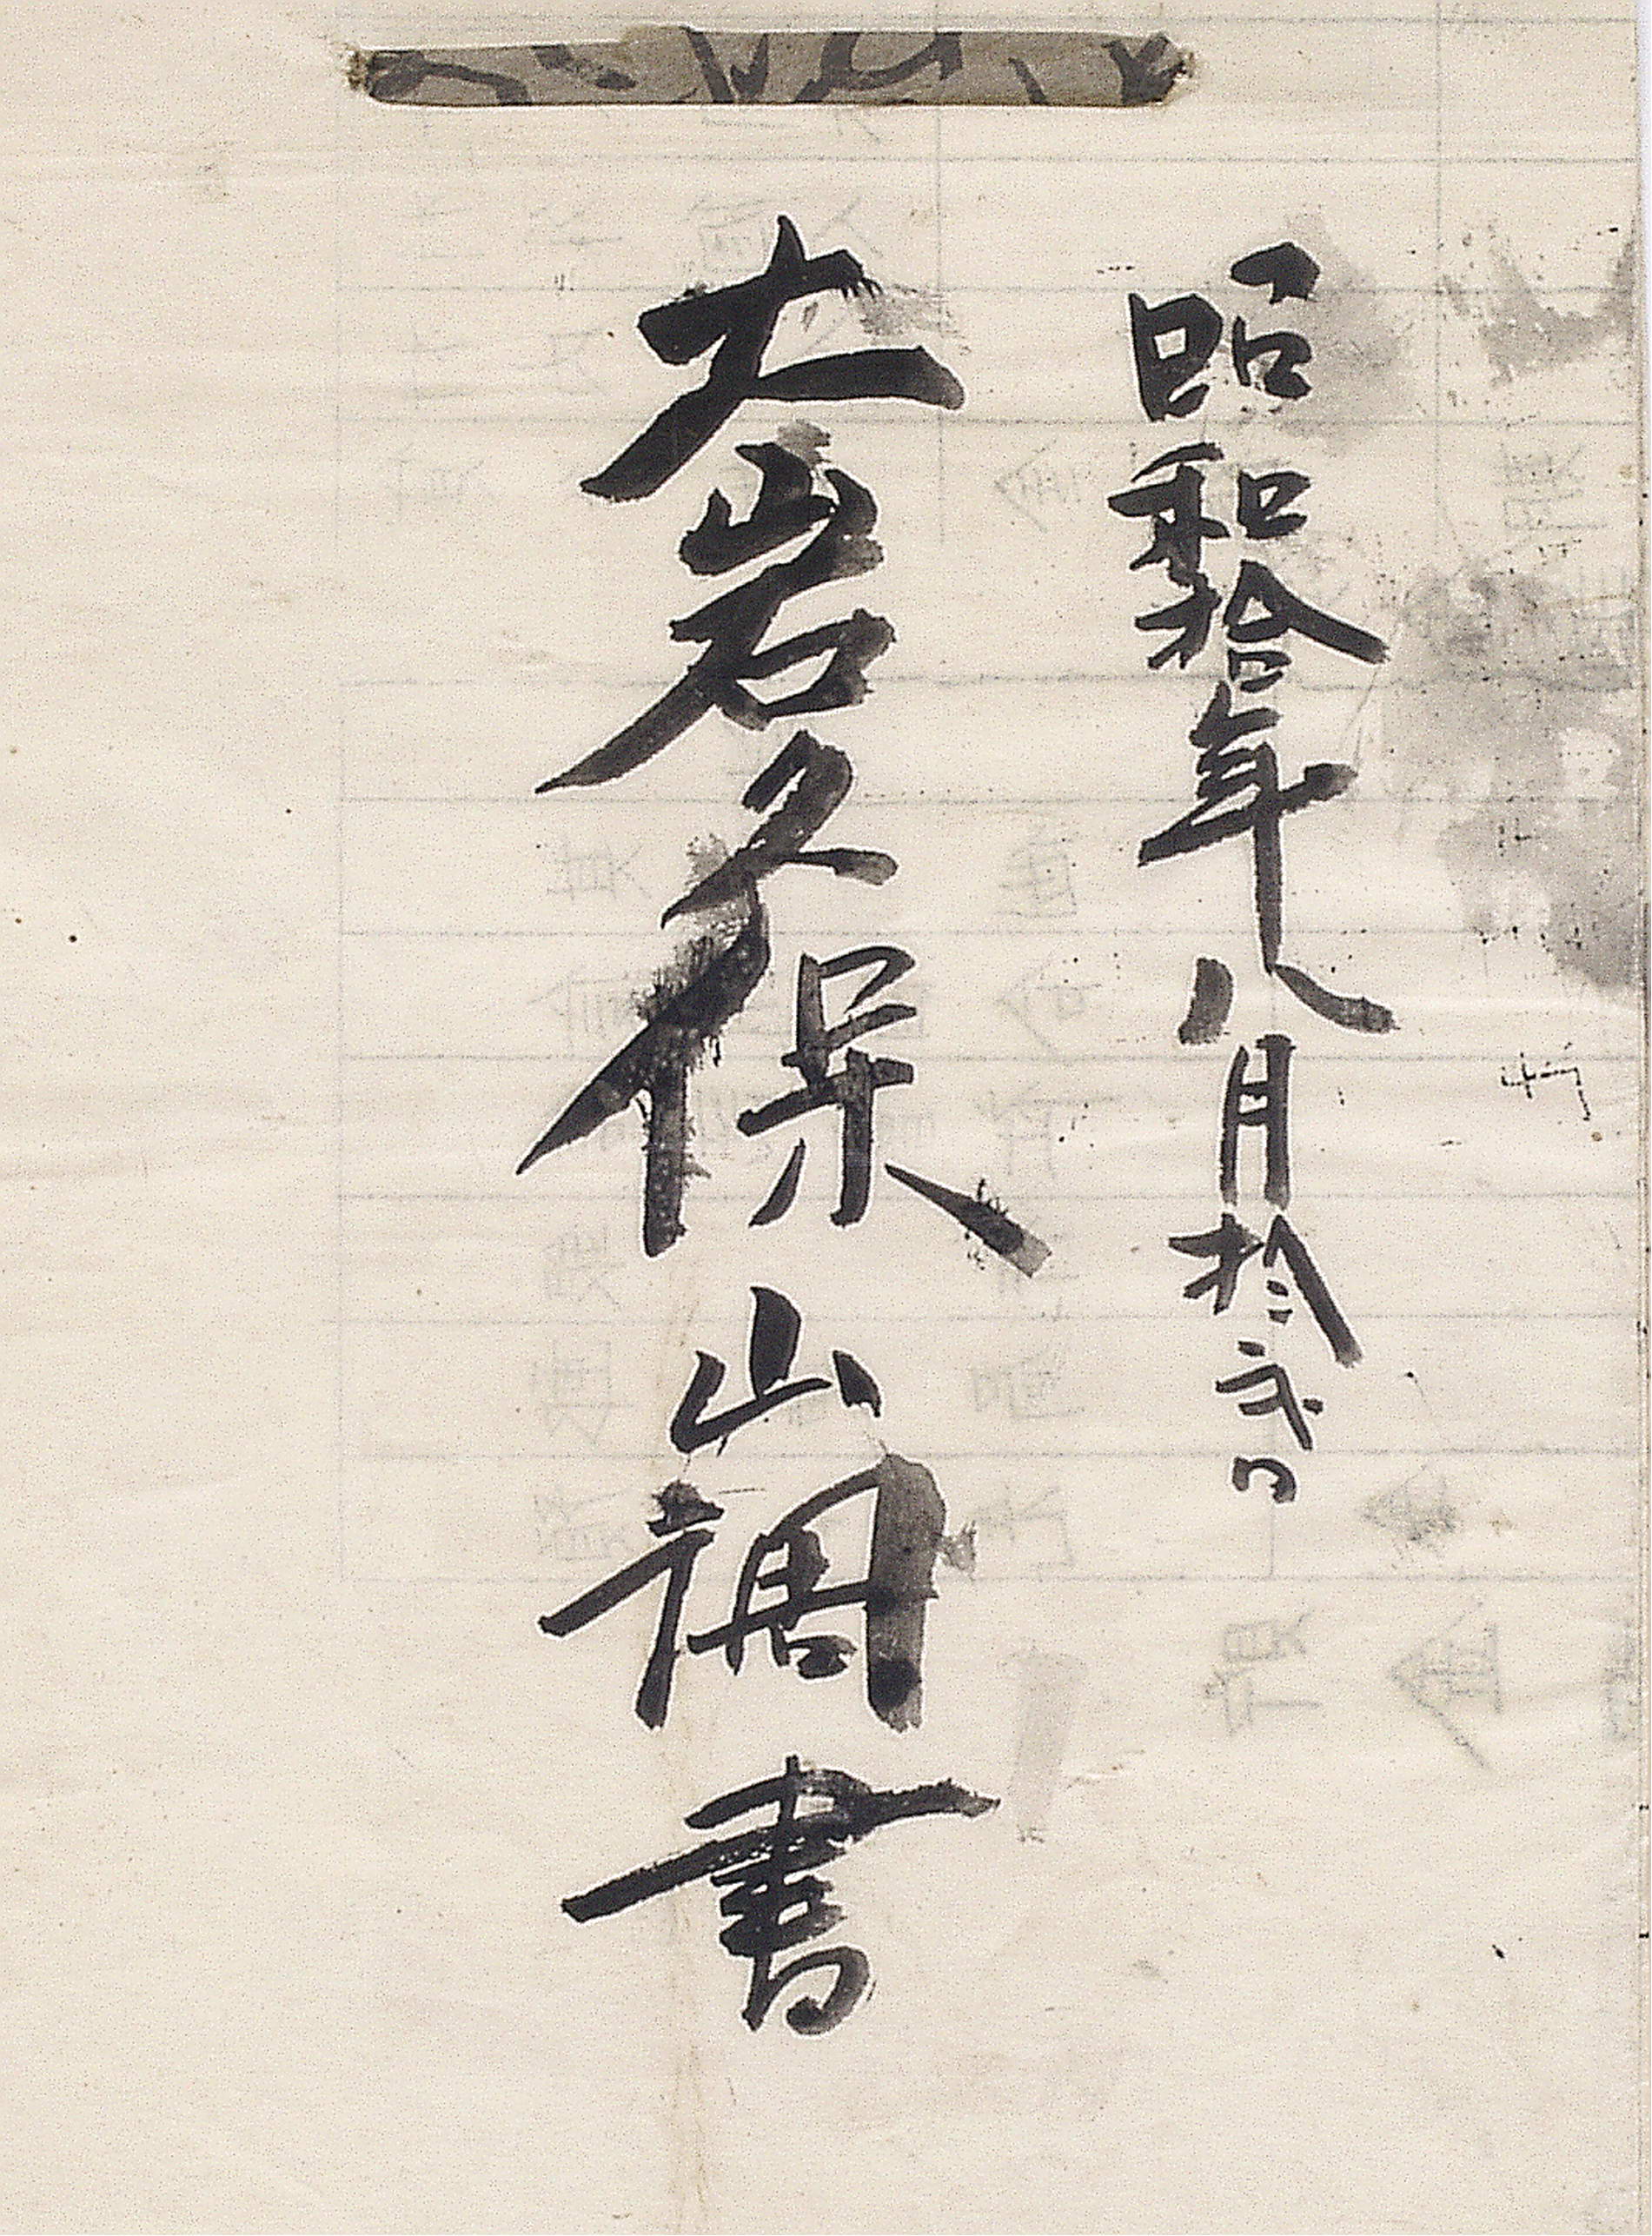 昭和拾年八月拾弐日
大岩久保山調書